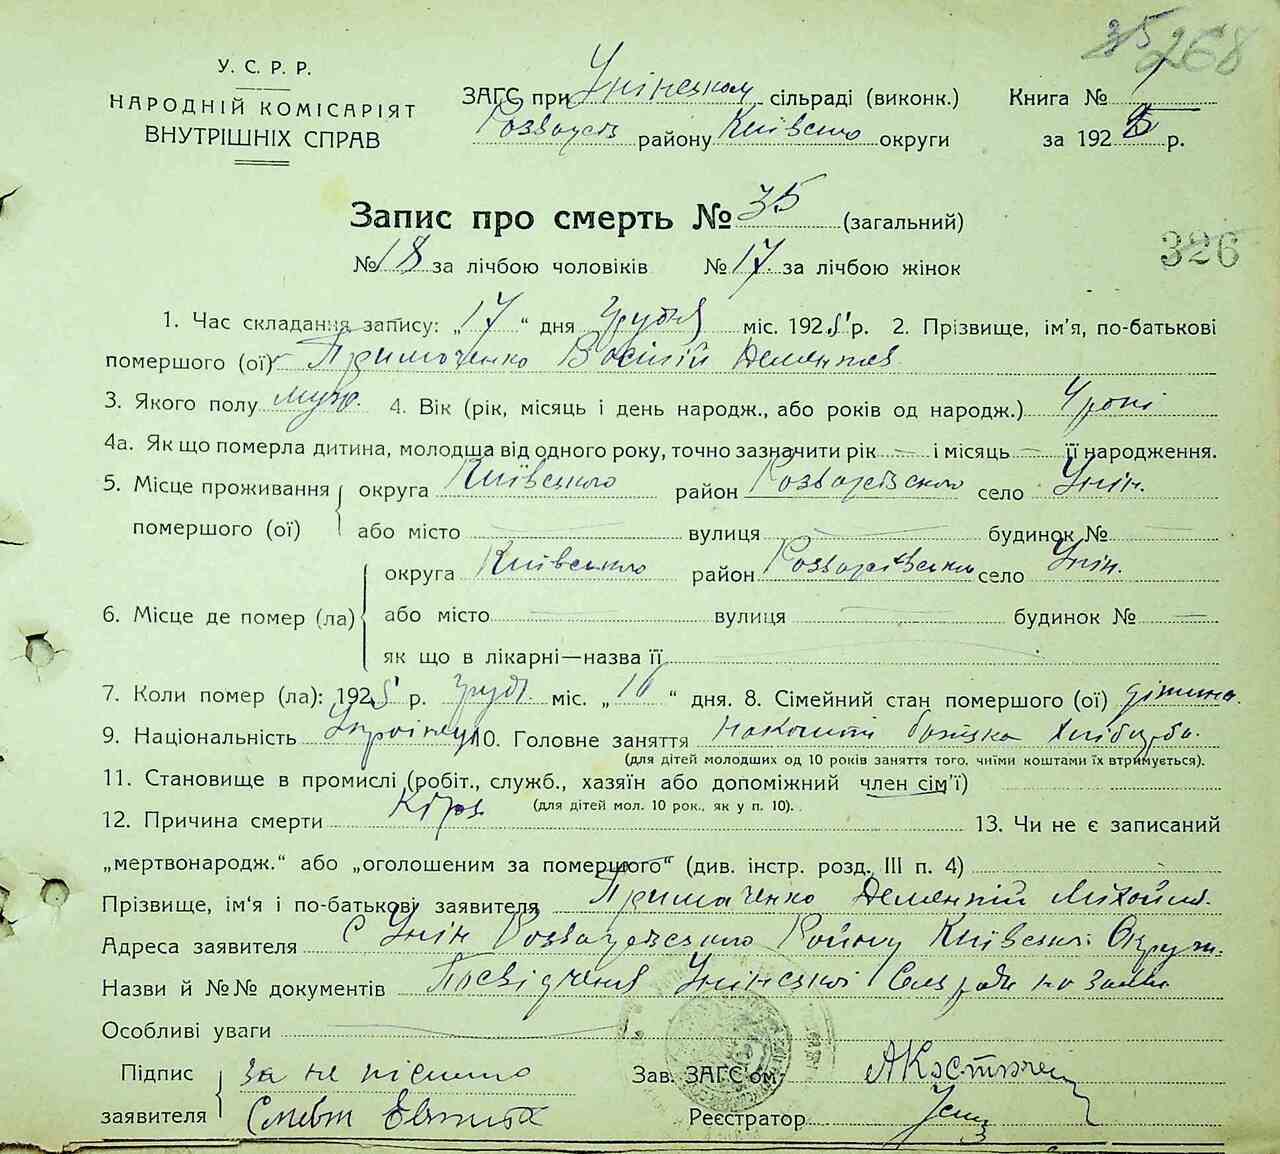 35 268
У. С. Р. Р.
НАРОДНІЙ КОМІСАРІЯТ
ВНУТРІШНІХ СПРАВ
ЗАГС при Унінськом сільраді (виконк.)
району Київсько округи
Книга № 1
за 1925 р.
Запис про смерть № 35 (загальний)
№ 18 за лічбою чоловіків № 17 за лічбою жінок
326
1. Час складання запису: „17“ дня Грудня міс. 1925 р. 2. Прізвище, ім'я, по-батькові
помершого (ої) Примаченко Васілій Дементев
3. Якого полу муж. 4. Вік (рік, місяць і день народж., або років од народж.) 4 роки
4а. Як що померла дитина, молодша від одного року, точно зазначити рік — і місяць — її народження.
5. Місце проживання помершого (ої) округа Київського район Розважевского село Унін.
або місто вулиця будинок №
6. Місце де помер (ла) округа Київського район село Унін.
або місто вулиця будинок №
як що в лікарні—назва її
7. Коли помер (ла): 1925 р. груд. міс. „16“ дня. 8. Сімейний стан помершого (ої) дітина.
9. Національність 10. Головне заняття на кошті батька Хлібороба.
(для дітей молодших од 10 років заняття того, чиїми коштами їх втримується).
11. Становище в промислі (робіт., служб., хазяїн або допоміжний член сім'ї)
(для дітей мол. 10 рок., як у п. 10).
12. Причина смерти Кір 13. Чи не є записаний
„мертвонародж.“ або „оголошеним за помершого“ (див. інстр. розд. III п. 4)
Прізвище, ім'я і по-батькові заявителя Примаченко Дементій Михайл.
Адреса заявителя с Унін Розважевського Району Київської Округи.
Назви й №№ документів Посвідчення Унінської Сельради
Особливі уваги
Підпис заявителя за не письмено
Зав. ЗАГС'ом
Реєстратор